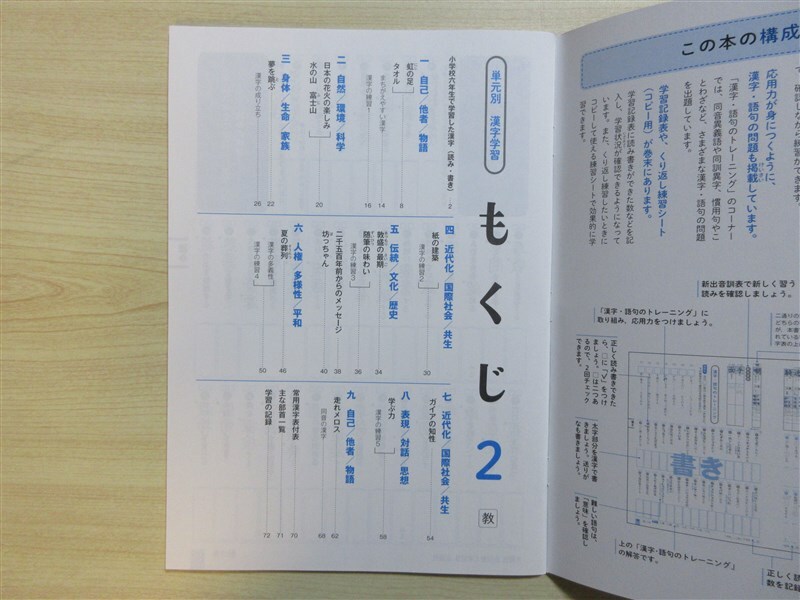 もくじ 2 教
単元別 漢字学習
小学校六年生で学習した漢字(読み・書き) 2
一 自己/他者/物語
虹の足 8
タオル 14
まちがえやすい漢字
漢字の練習1 16
二 自然/環境/科学
日本の花火の楽しみ
水の山 富士山 20
三 身体/生命/家族
夢を跳ぶ 22
漢字の成り立ち 26
四 近代化/国際社会/共生
紙の建築 30
漢字の練習2
五 伝統/文化/歴史
敦盛の最期 34
随筆の味わい 36
漢字の練習3 38
二千五百年前からのメッセージ
坊っちゃん 40
六 人権/多様性/平和
夏の葬列 46
漢字の多義性
漢字の練習4 50
七 近代化/国際社会/共生
ガイアの知性 54
八 表現/対話/思想
学ぶ力
漢字の練習5 58
九 自己/他者/物語
走れメロス 62
同音の漢字 68
常用漢字表付表 70
主な部首一覧 71
学習の記録 72
この本の構成
応用力が身につくように、
漢字・語句の問題も掲載しています。
「漢字・語句のトレーニング」のコーナー
では、同音異義語や同訓異字、慣用句やこ
とわざなど、さまざまな漢字・語句の問題
を出題しています。
学習記録表や、くり返し練習シート
(コピー用)が巻末にあります。
学習記録表に読み書きができた数などを記
入し、学習状況が確認できるようになって
います。また、くり返し練習したいときに
コピーして使える練習シートで効果的に学
習できます。
新出音訓表で新しく習う
読みを確認しましょう。
「漢字・語句のトレーニング」に
取り組み、応用力をつけましょう。
正しく読み書きできた
ら、□に「✓」をつけ
ましょう。□は二つあ
るので、2回チェック
できます。
太字部分を漢字で書
きましょう。送りが
なも書きましょう。
難しい語句は、
「意味」を確認し
ましょう。
書き
上の「漢字・語句のトレーニング」
の解答です。
正しく読
数を記録